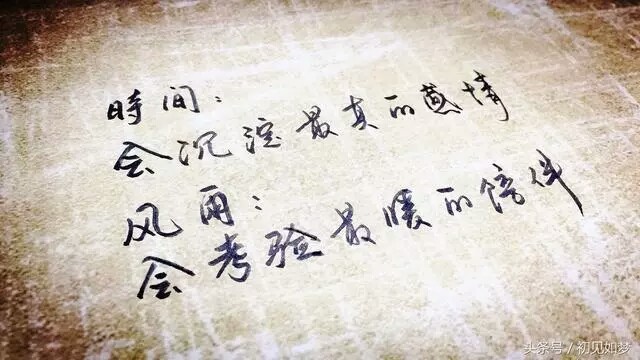 時间：
会沉淀最真的感情
风雨：
会考验最暖的陪伴
头条号/初见如梦